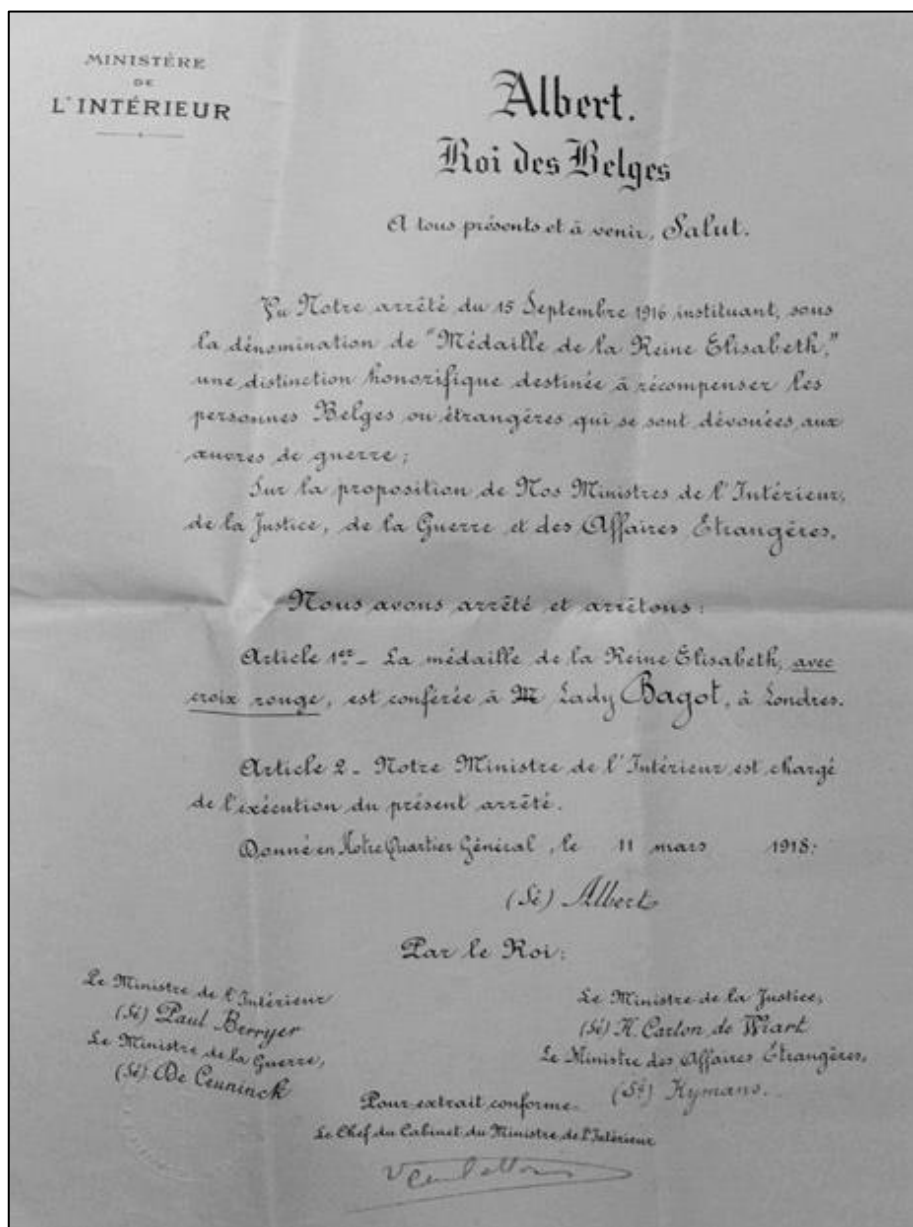 MINISTÈRE
DE
L'INTÉRIEUR
Albert.
Roi des Belges
A tous présents et à venir, Salut.
Vu Notre arrêté du 15 Septembre 1916 instituant, sous
la dénomination de "Médaille de la Reine Elisabeth,"
une distinction honorifique destinée à récompenser les
personnes Belges ou étrangères qui se sont dévouées aux
œuvres de guerre;
Sur la proposition de Nos Ministres de l'Intérieur,
de la Justice, de la Guerre et des Affaires Etrangères.
Nous avons arrêté et arrêtons:
Article 1er_ La médaille de la Reine Elisabeth, avec
croix rouge, est conférée à M Lady Bagot, à Londres.
Article 2_ Notre Ministre de l'Intérieur est chargé
de l'exécution du présent arrêté.
Donné en Notre Quartier Général, le 11 mars 1918:
(Sé) Albert
Par le Roi:
Le Ministre de l'Intérieur
(Sé) Paul Berryer
Le Ministre de la Guerre,
(Sé) De Ceuninck
Le Ministre de la Justice,
(Sé) H. Carton de Wiart
Le Ministre des Affaires Étrangères,
(Sé) Hymans..
Pour extrait conforme.
Le Chef du Cabinet du Ministre de l'Intérieur